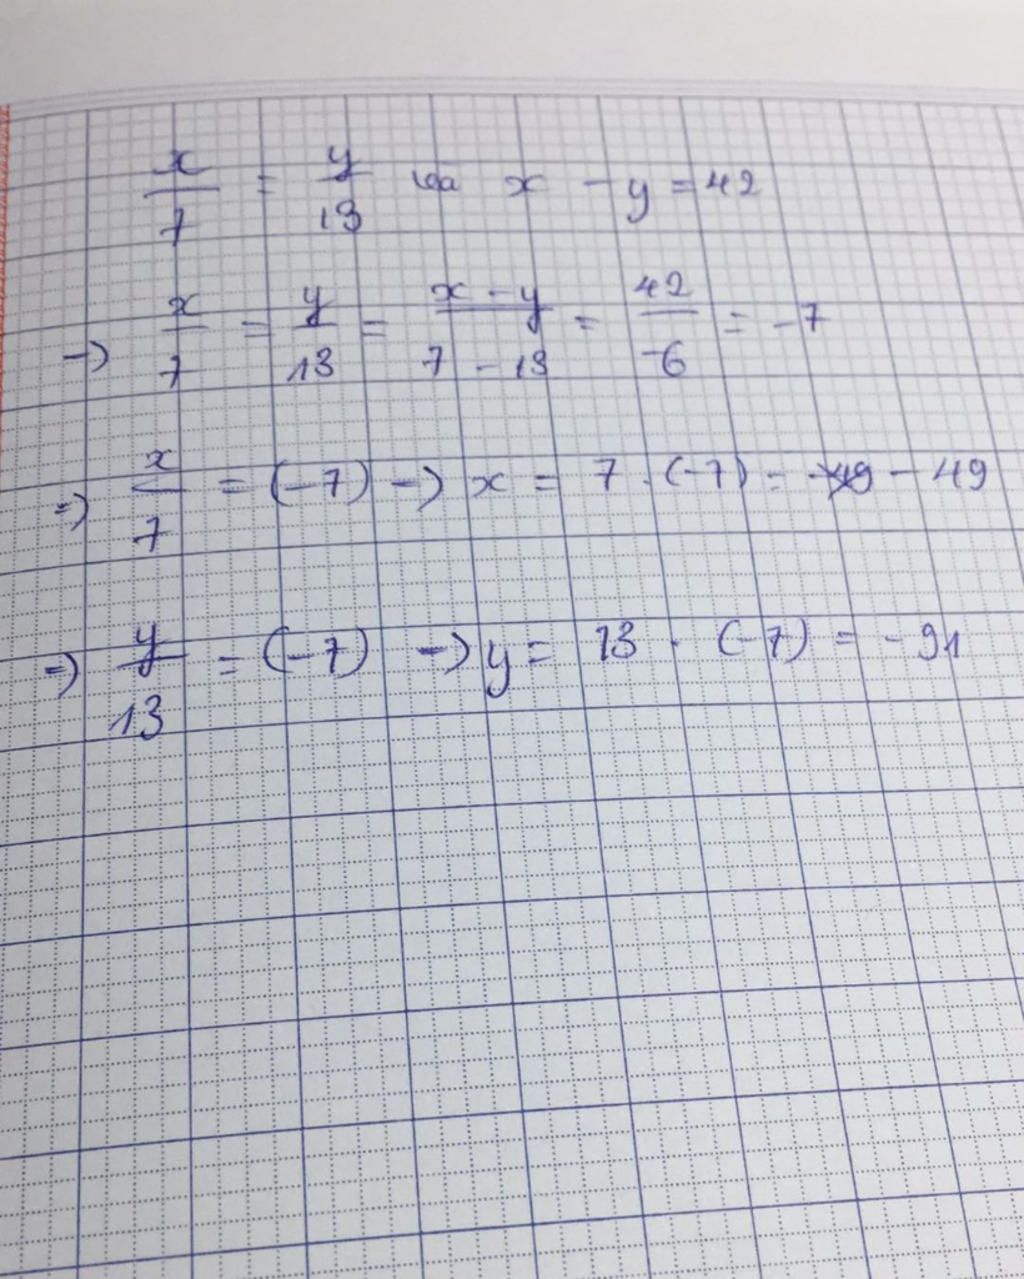 x/7 = y/13 và x - y = 42
-> x/7 = y/13 = x - y/7 - 13 = 42/-6 = -7
=> x/7 = (-7) -> x = 7 . (-7) = - 49
=> y/13 = (-7) -> y = 13 . (-7) = - 91